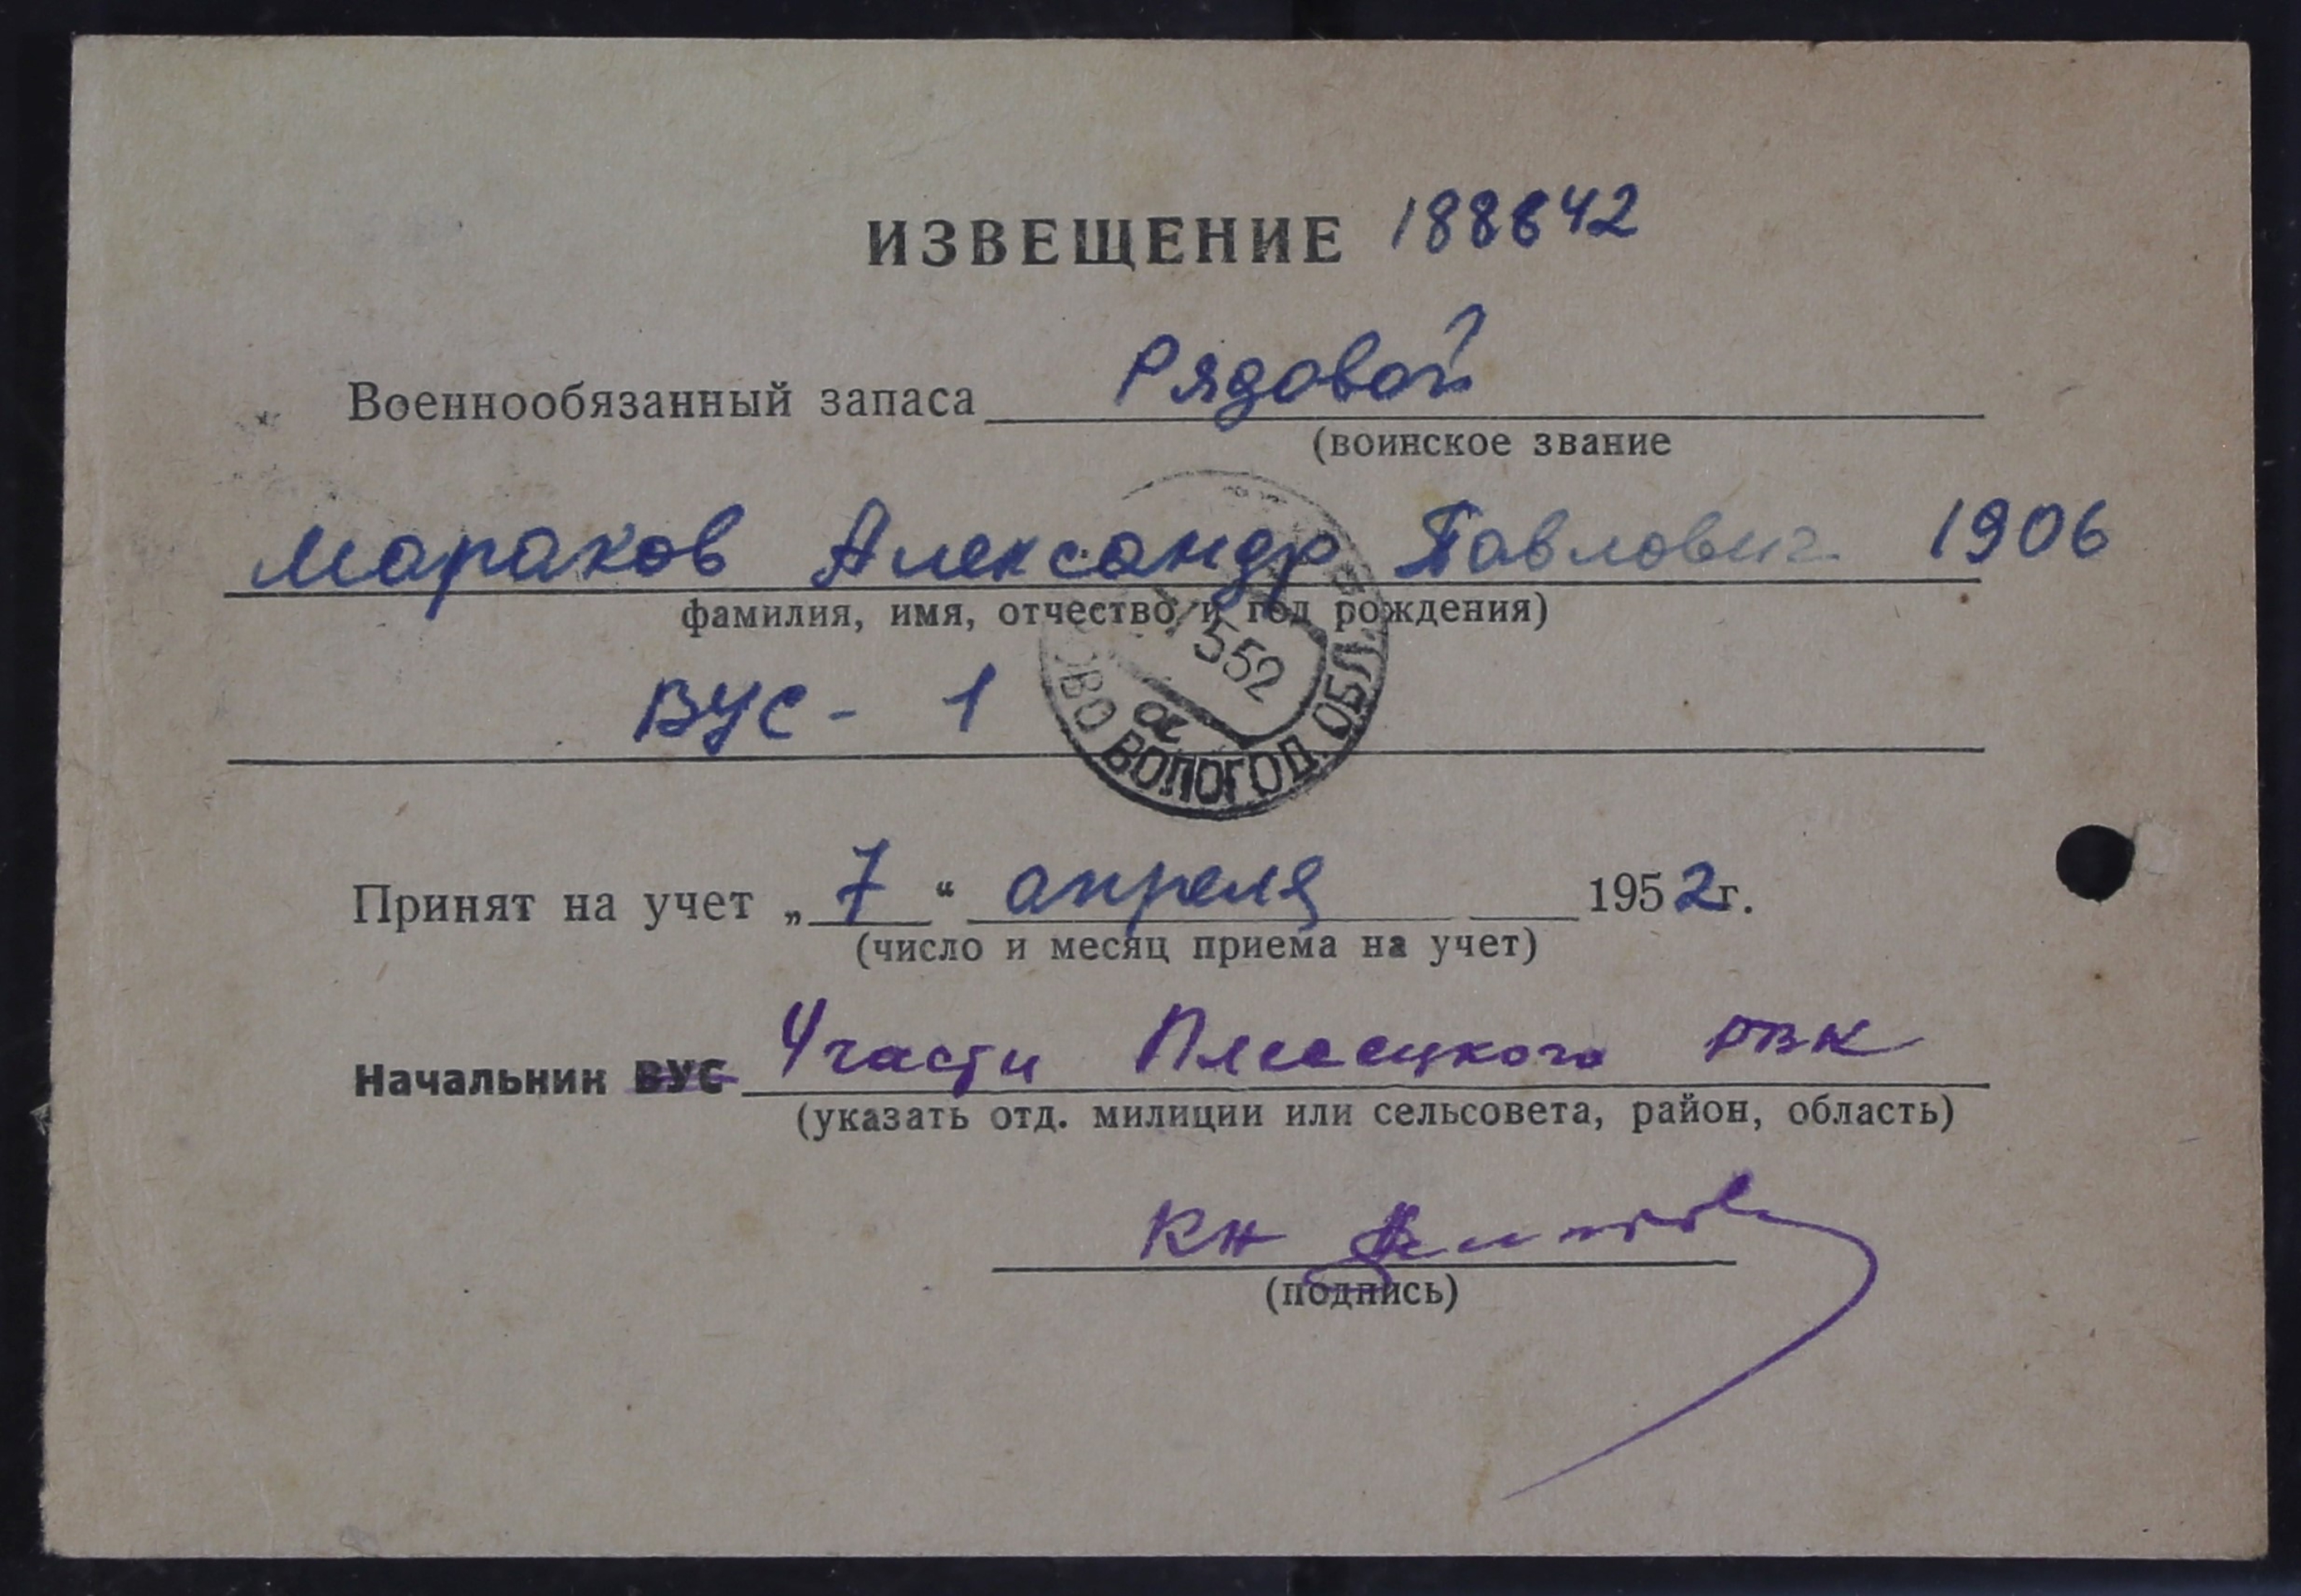 ИЗВЕЩЕНИЕ 188642
Военнообязанный запаса Рядовой
(воинское звание
Мараков Александр Павлович 1906
фамилия, имя, отчество и год рождения)
552
ВУС - 1
ОВО ВОЛОГОД. ОБЛ.
Принят на учет „7“ апреля 1952г.
(число и месяц приема на учет)
Начальник ВУС 4 части Плесецкого РВК
(указать отд. милиции или сельсовета, район, область)
(подпись)